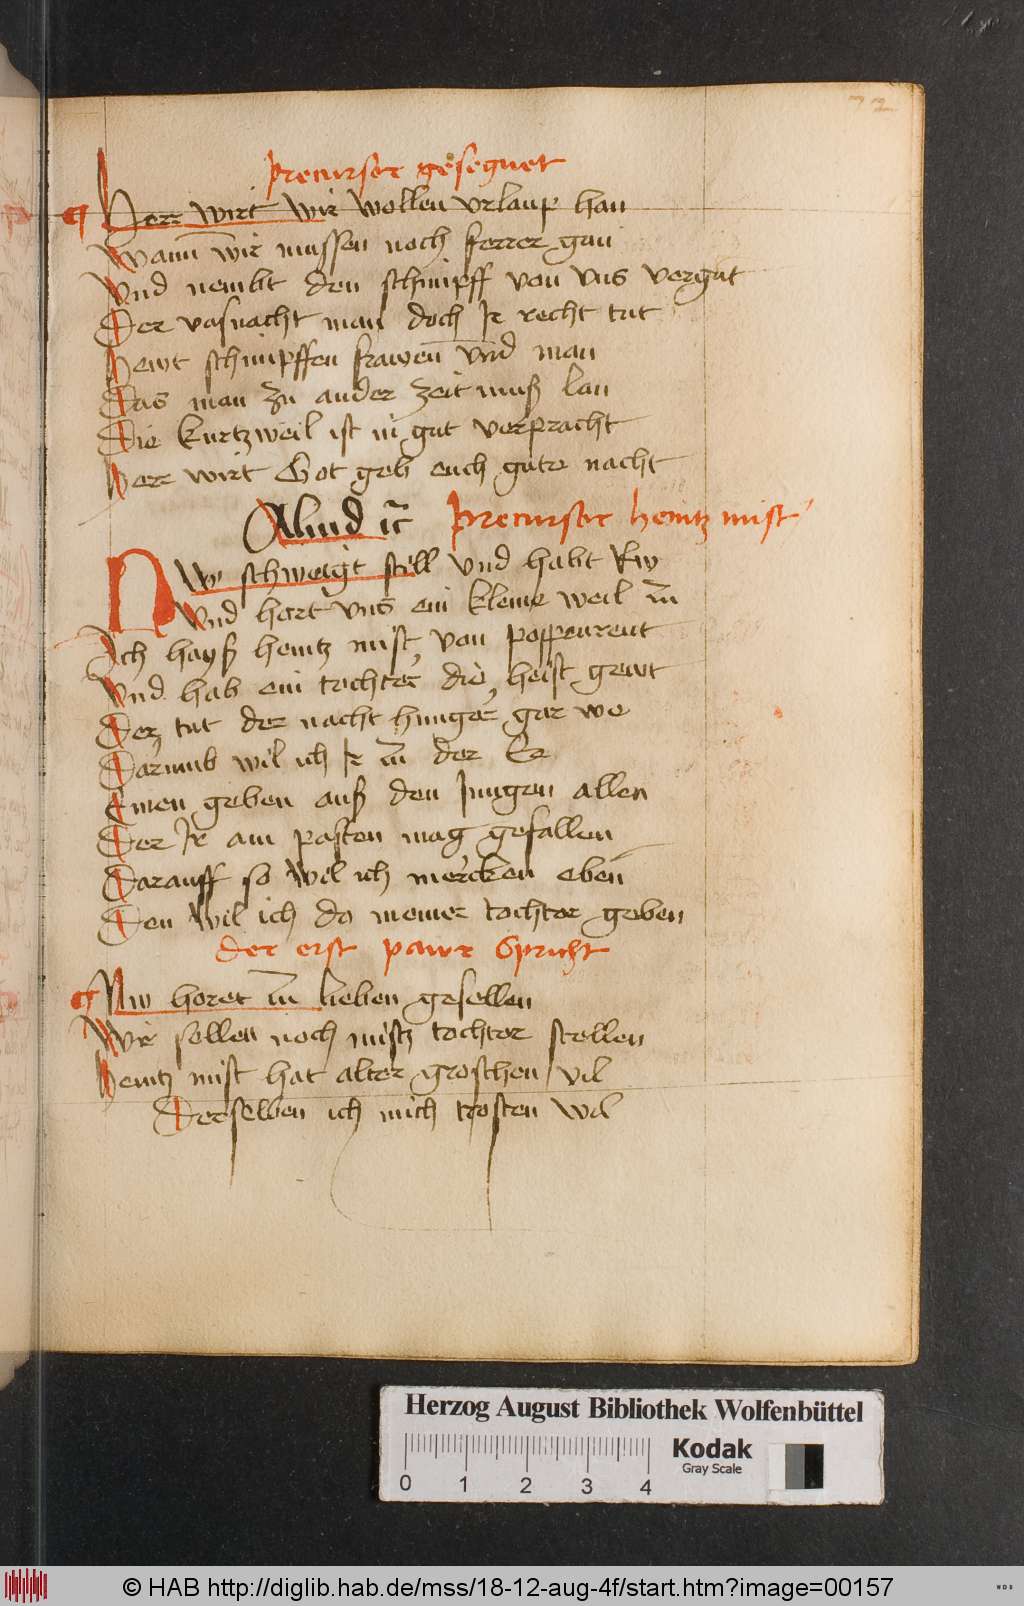 precursor gesegnet
Herr wirt wir wollen vrlaup han
Wann wir mussen noch ferrer gan
Vnd nembt den schimpff von vns vergut
Der vasnacht man doch Ir recht tut
Hewt schimpffen frawen vnd man
Das man zu ander zeit muß lan
Die kurtzweil ist in gut verpracht
Herr wirt Got geb euch gute nacht
Aliud precursor heintz mist
Nw schweigt still vnd habt Rw
Vnd hort vns ein kleine weil zu
Ich hayß heintz mist von poppenrewt
Vnd hab ein tochter die heist gewt
Der tut der nacht hunger gar we
Darumb wil ich Ir zu der Ee
Einen geben auß den Jungen allen
Der Ir am pasten mag gefallen
Darauff so wil ich mercken eben
Den wil ich do meiner tochter geben
der erst pawr Spricht
Nw horet zu lieben gesellen
Wir sollen noch mistz tochter stellen
Heintz mist hat alter groschen vil
Derselben ich mich trosten wil
Herzog August Bibliothek Wolfenbüttel
Kodak
Gray Scale
0 1 2 3 4
© HAB http://diglib.hab.de/mss/18-12-aug-4f/start.htm?image=00157